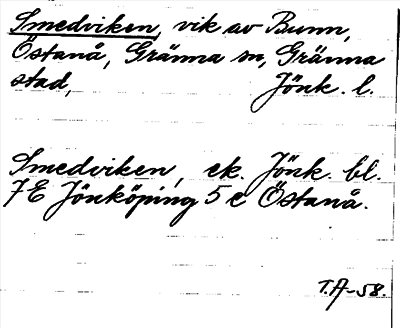 Smedviken, vik av Bunn,
Östanå, Gränna sn, Gränna
stad, Jönk. l.
Smedviken, ek. Jönk. bl.
7E Jönköping 5 c Östanå.
T.A-58.